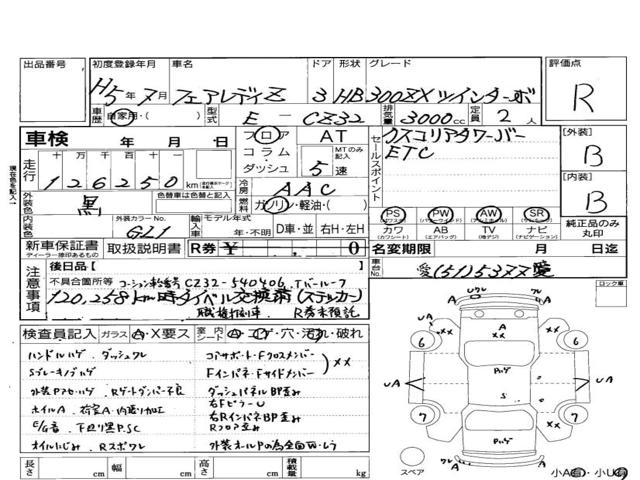 出品番号 初度登録年月 車名 ドア 形状 グレード 評価点
H5年7月 フェアレディZ 3 HB 300ZXツインターボ R
車歴 自家用・( ) 型式 E-CZ32 排気量 3000cc 定員 2人
車検 年 月 日 フロア AT クスコリアタワーバー 【外装】
コラム・ダッシュ MTのみ記入 5速 セールスポイント ETC B
走行 十万 万 千 百 十 一
126250km 冷房 AAC 【内装】
燃料 ガソリン・軽油・( ) B
外装色 黒 色替車は色替と記入
PS PW AW SR 純正品のみ丸印
(パワステ) (サンルーフ)
内装色 外装カラーNo. GL1 輸入車 モデル年式 年・不明 D車・並 右H・左H カワ AB TV ナビ
(カワシート) (エアバッグ) (ナビゲーション)
新車保証書 取扱説明書 R券 ¥ 0 名変期限 月 日迄
ディーラー捺印あるもの
現在色を記入→
注意事項 後日品「 」 車台No.
不具合箇所等 コーション プレート番号 CZ32-540406 Tバールーフ
120,258km時ダイベル交換済(ステッカー)
職権打刻車 R券未預託
ロック車
検査員記入 ガラス A・X要ス 室内シート A・コゲ・穴・汚れ・破れ
ハンドルハゲ、ダッシュワレ コアサポート・Fクロスメンバー
Fインパネ・Fサイドメンバー XX
ダッシュパネルBP歪み
ホイルA 右FピラーU
右RインパネBP歪み
Rフロア歪み
オイルにじみ Rスポワレ
長さ cm 幅 cm 高さ cm 積載量 kg
スペア 小A 小U
Uワレ A XX
6 6
UA UA
S
7 7
Pハゲ
UA